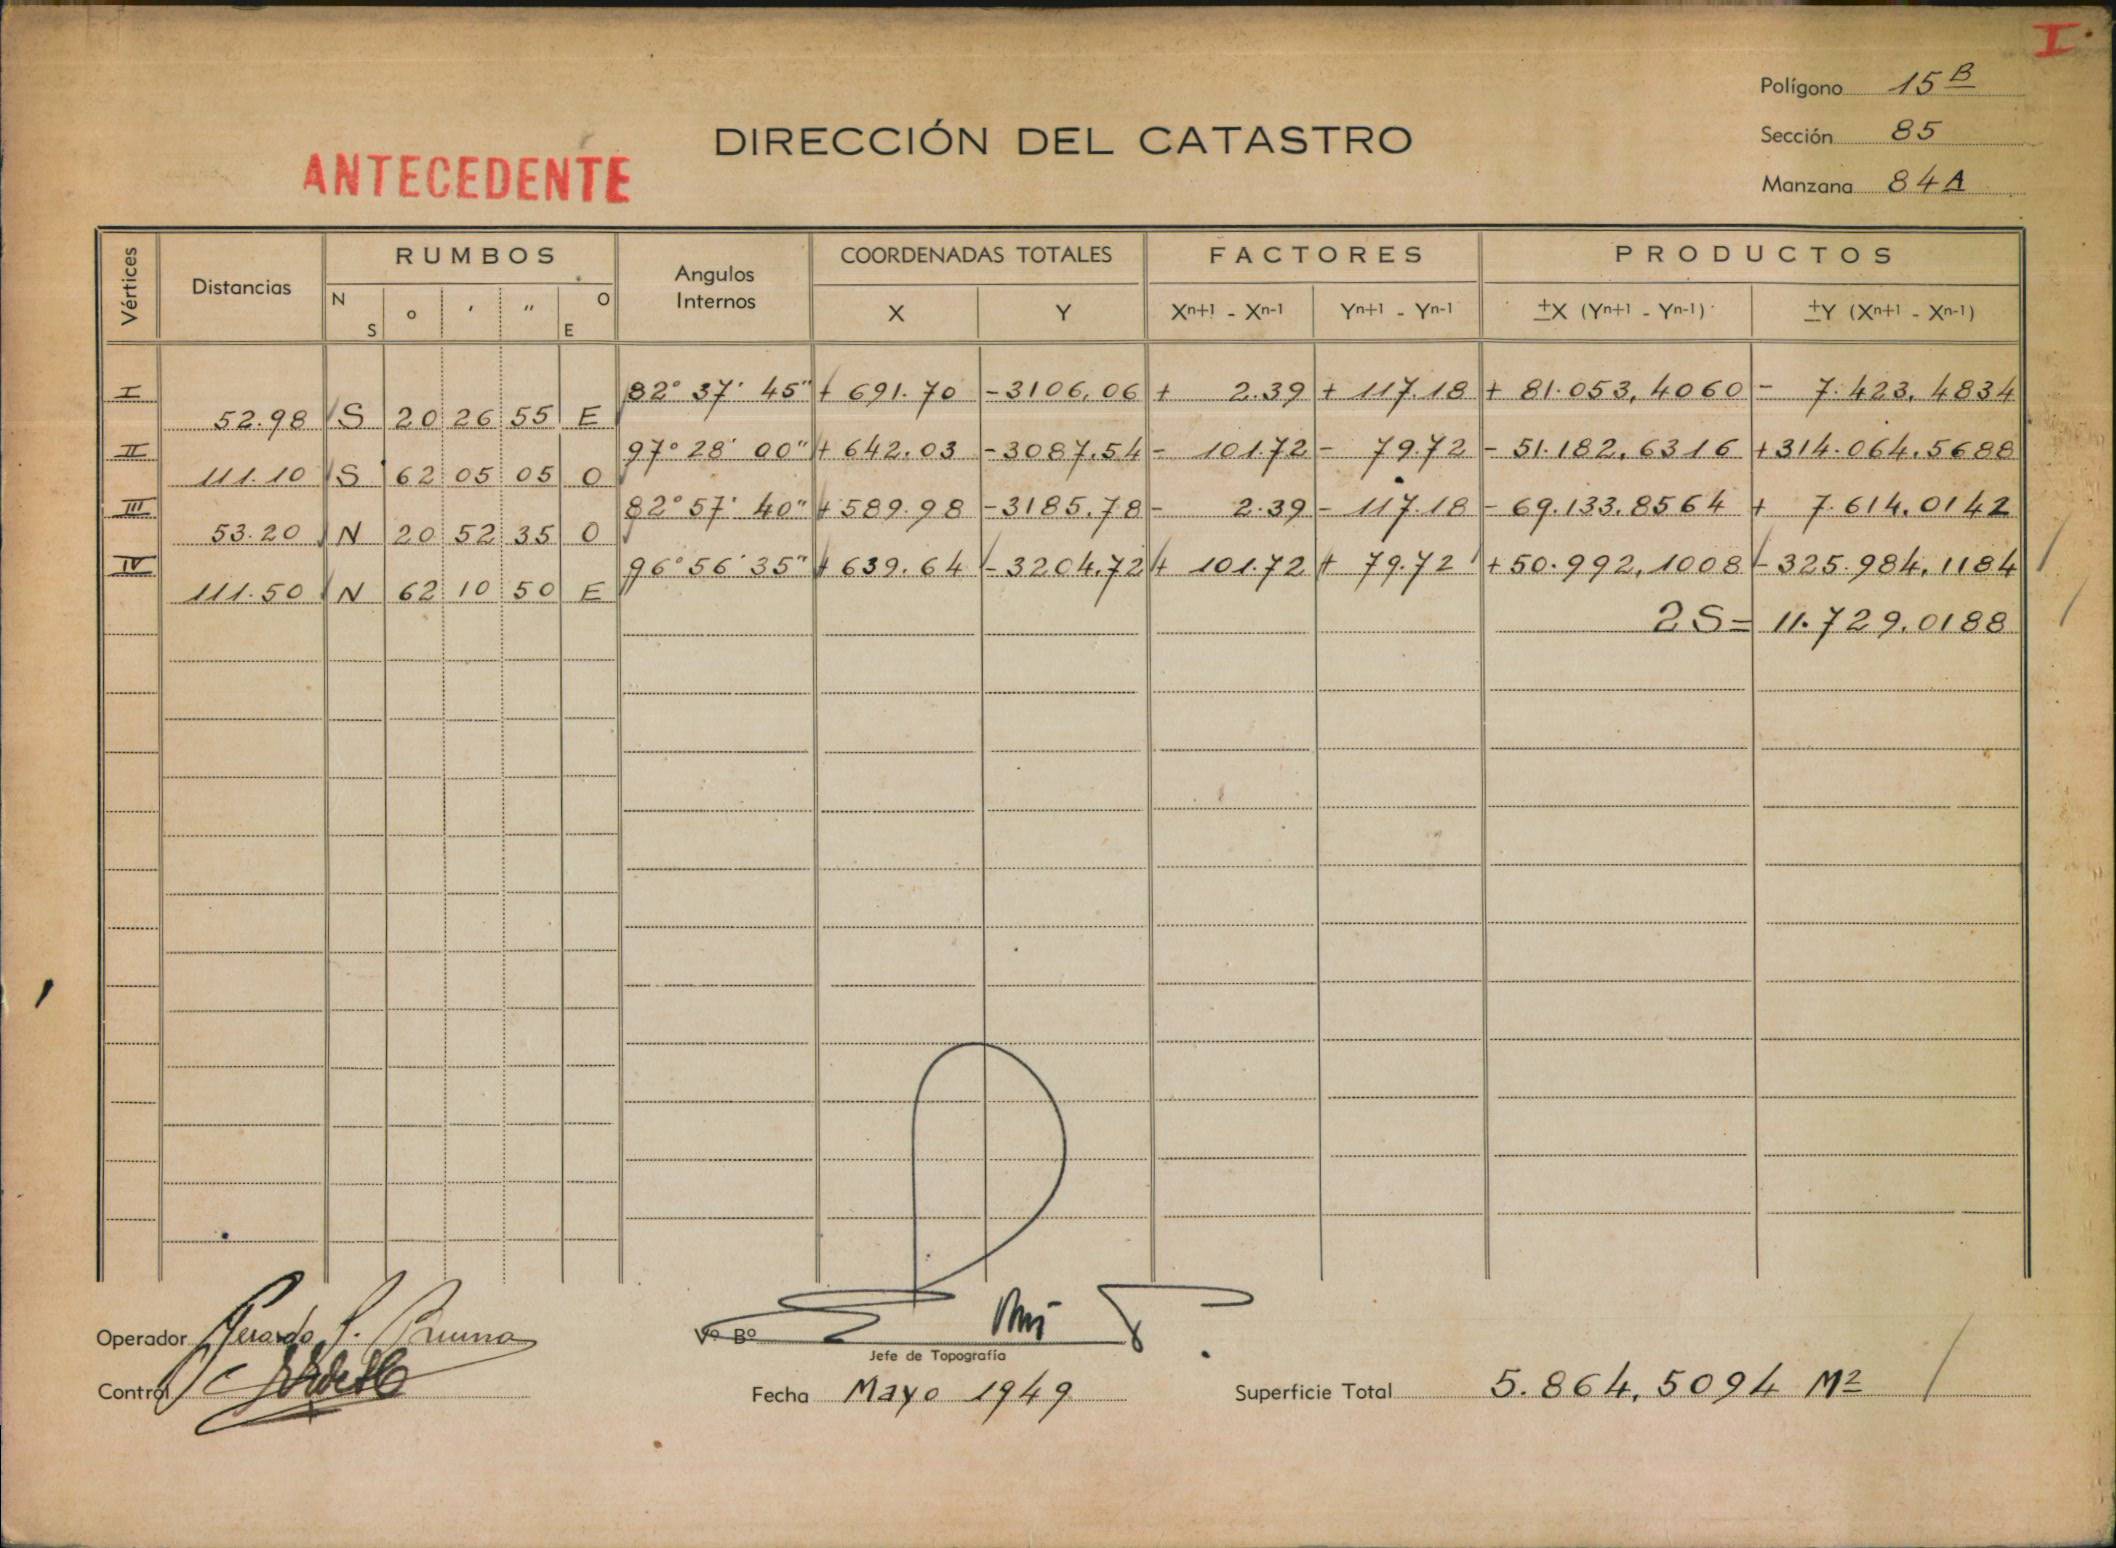 I.
Polígono 15 B
DIRECCIÓN DEL CATASTRO
Sección 85
ANTECEDENTE
Manzana 84A
Vértices Distancias RUMBOS Angulos Internos COORDENADAS TOTALES FACTORES PRODUCTOS
N S o ' " O E X Y Xn+1 - Xn-1 Yn+1 - Yn-1 ±X (Yn+1 - Yn-1) ±Y (Xn+1 - Xn-1)
I 82° 37' 45" + 691.70 -3106,06 + 2.39 + 117.18 + 81.053,4060 - 7.423,4834
52.98 S 20 26 55 E
II 97° 28' 00" + 642.03 -3087,54 - 101.72 - 79.72 - 51.182,6316 +314.064,5688
111.10 S 62 05 05 O
III 82° 57' 40" + 589.98 -3185,78 - 2.39 - 117.18 - 69.133,8564 + 7.614,0142
53.20 N 20 52 35 O
IV 96° 56' 35" + 639.64 -3204,72 + 101.72 + 79.72 +50.992,1008 -325.984,1184
111.50 N 62 10 50 E
2S= 11.729,0188
Operador Gerardo
Vº Bº
Jefe de Topografía
Control
Fecha Mayo 1949
Superficie Total 5.864,5094 M2